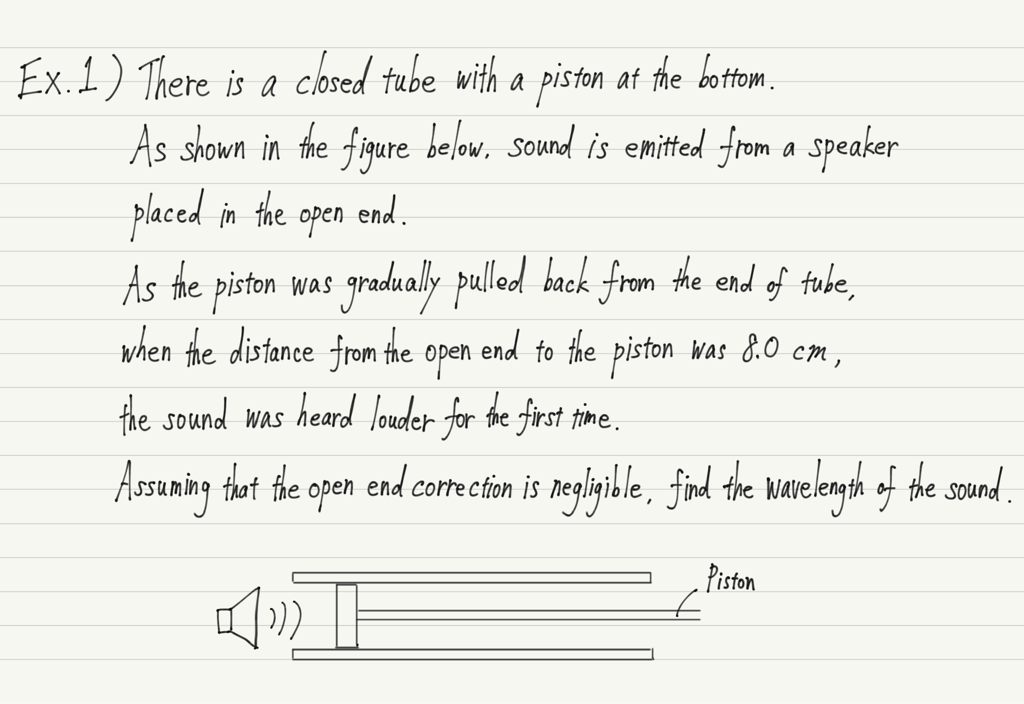 Ex.1) There is a closed tube with a piston at the bottom.
As shown in the figure below, sound is emitted from a speaker
placed in the open end.
As the piston was gradually pulled back from the end of tube,
when the distance from the open end to the piston was 8.0 cm,
the sound was heard louder for the first time.
Assuming that the open end correction is negligible, find the wavelength of the sound.
Piston